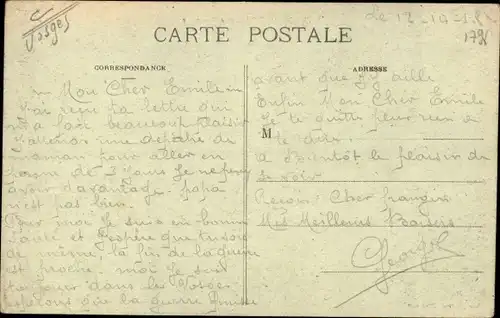 Vosges
Le 13-10-18
1798
CARTE POSTALE
CORRESPONDANCE
ADRESSE
M
Mon Cher Emile
J'ai reçu ta lettre qui
m'a fait beaucoup plaisir
J'attends une dépêche de
maman pour aller en
perm de Jours Je ne pense
avoir davantage. papa
n'est pas bien.
Pour moi Je suis en bonne
santé et J'espère que tu sois
de même, la fin de la guerre
est proche, moi Je suis
toujour dans les Vosges
espérons que la guerre finisse
avant que J'y aille
Enfin Mon Cher Emile
Je te quitte plus rien a
te dire.
a Bientôt le plaisir de
se voir
Reçois Cher frangin
Mes Meilleurs Baisers
Georges